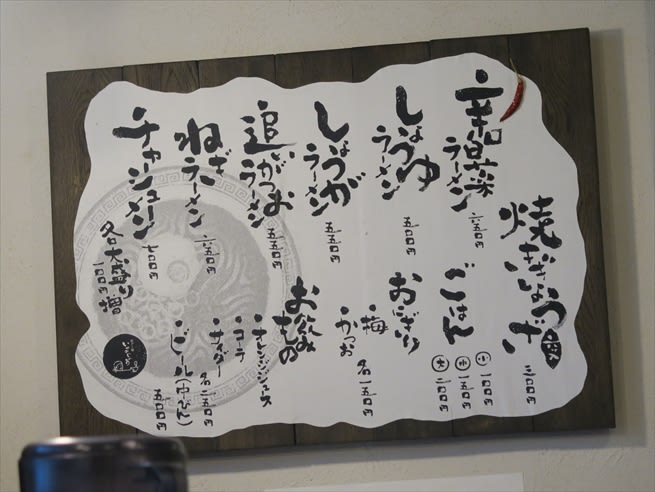 辛白菜ラーメン 六五〇円
しょうゆラーメン 五五〇円
しょうがラーメン 五五〇円
追いがつおラーメン 五五〇円
ねぎラーメン 六五〇円
チャーシューメン 七〇〇円
各大盛り
一〇〇円増
焼きぎょうざ 三〇〇円
ごはん
小 一〇〇円
中 一五〇円
大 二〇〇円
おにぎり
梅
かつお 各一五〇円
お飲みもの
オレンジジュース
コーラ
サイダー 各二五〇円
ビール(中びん) 五〇〇円